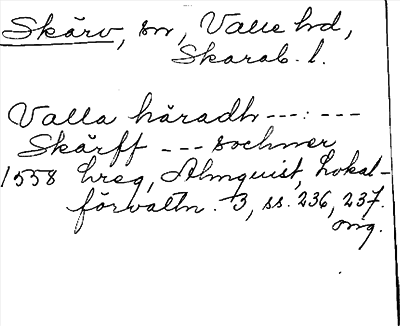 Skärv, sn, Valle hd,
Skarab. l.
Valla häradh ---:---
Skärff --- sochner
1558 hreg, Almquist, Lokal-
förvaltn. 3, ss. 236, 237.
orig.